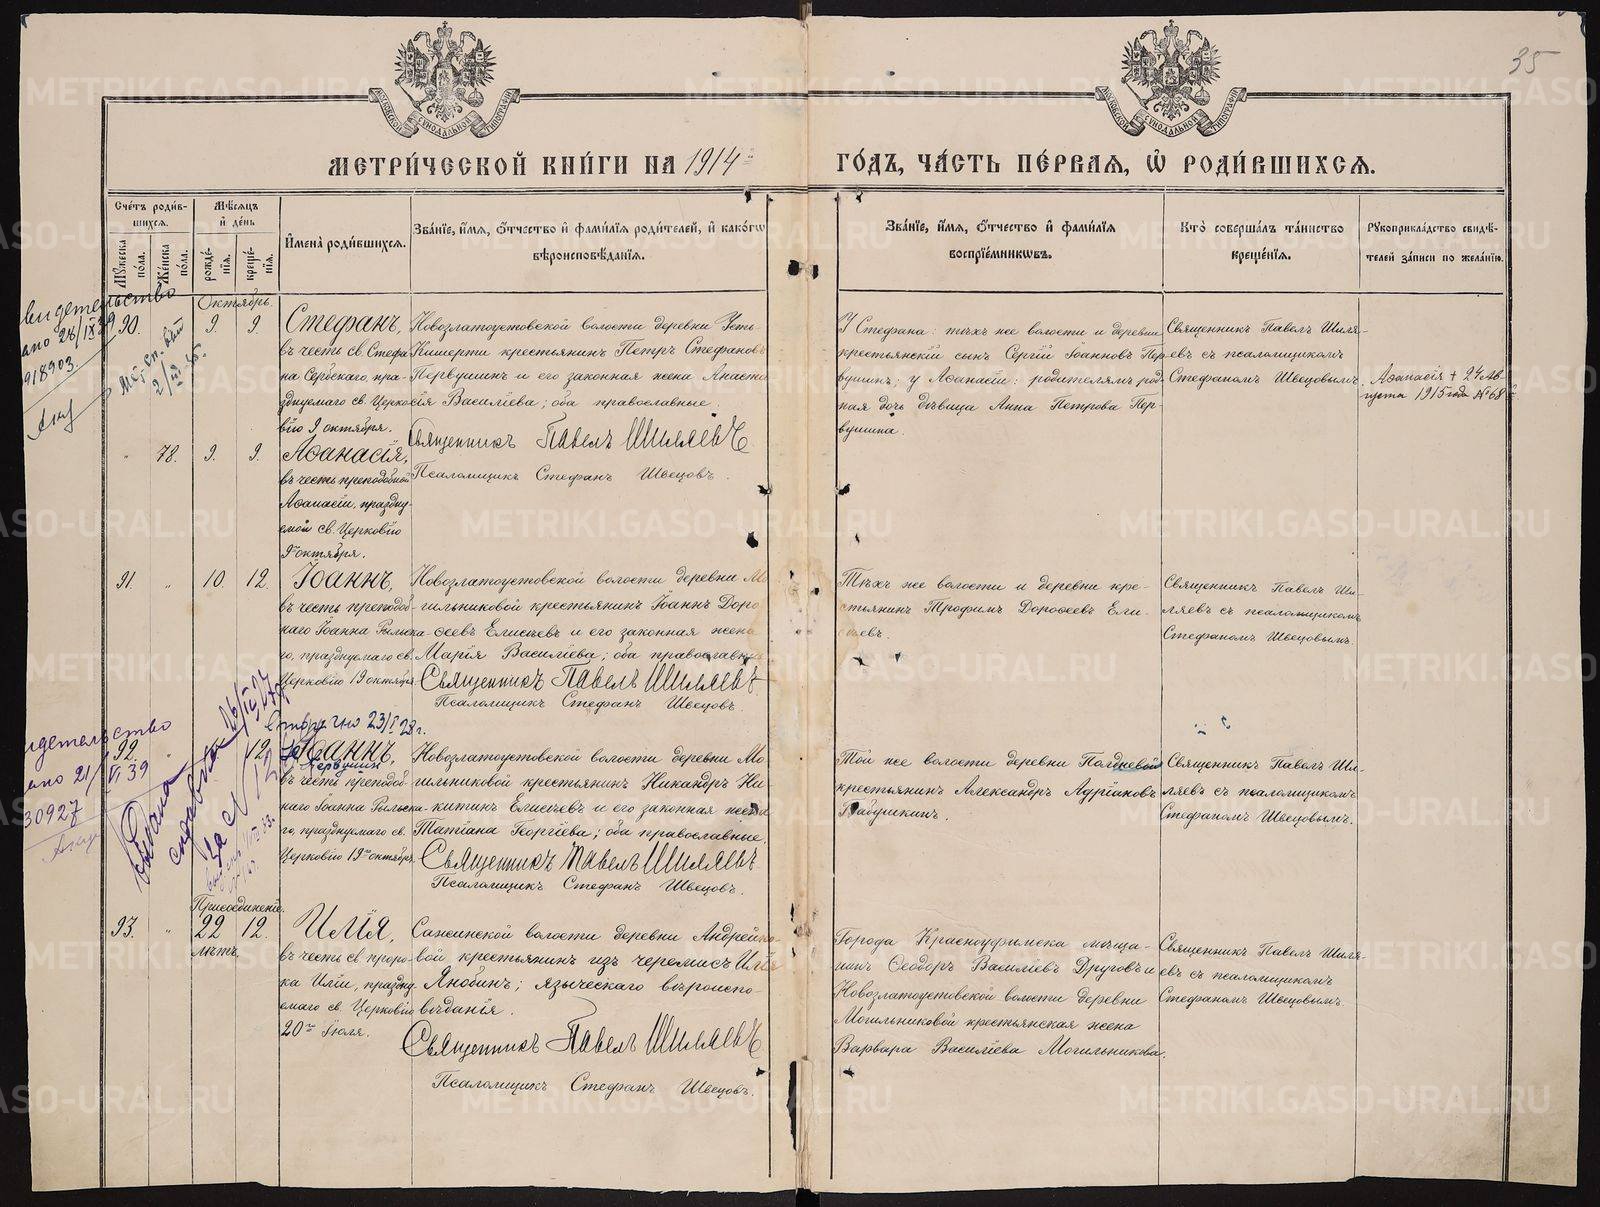 35
МОСКОВСКОЙ СѴНОДАЛЬНОЙ ТИПОГРАФІИ
МОСКОВСКОЙ СѴНОДАЛЬНОЙ ТИПОГРАФІИ
МЕТРИ́ЧЕСКОЙ КНИ́ГИ НА 1914 ГО́ДЪ, ЧА́СТЬ ПЕ́РВАЯ, Ѡ҆ РОДИ́ВШИХСѦ.
Сче́тъ роди́в-
шихсѧ.
Мꙋ́жеска
по́ла.
Же́нска
по́ла.
Мѣ́сѧцъ
и҆ де́нь
рожде́-
нїѧ.
креще́-
нїѧ.
И҆мена̀ роди́вшихсѧ.
Зва́нїе, и҆́мѧ, ѻ҆́тчество и҆ фами́лїѧ роди́телей, и҆ како́гѡ
вѣроисповѣ́данїѧ.
Зва́нїе, и҆́мѧ, ѻ҆́тчество и҆ фами́лїѧ
воспрїе́мникѡвъ.
Кто̀ соверша́лъ та́инство
креще́нїѧ.
Рꙋкоприкла́дство свидѣ́-
телей за́писи по жела́нїю.
Октябрь.
90.
9.
9.
Стефанъ,
въ честь св. Стефа-
на Сербскаго, пра-
зднуемаго св. Церко-
вію 9 октября.
Новозлатоустовской волости деревни Усть-
Кишерти крестьянинъ Петръ Стефановъ
Первушинъ и его законная жена Анаста-
сія Василіева; оба православные.
Священникъ Павелъ Шиляевъ
Псаломщикъ Стефанъ Швецовъ.
У Стефана: тѣхъ же волости и деревни
крестьянскій сынъ Сергій Іоанновъ Пер-
вушинъ; у Аѳанасіи: родителямъ род-
ная дочь дѣвица Анна Петрова Пер-
вушина.
Священникъ Павелъ Шиля-
евъ съ псаломщикомъ
Стефаномъ Швецовымъ.
Аѳанасія + 24 Ав-
густа 1915 года № 68
78.
9.
9.
Аѳанасія,
въ честь преподобной
Аѳанасіи, праздну-
емой св. Церковію
9го октября.
91.
10
12.
Іоаннъ,
въ честь преподоб-
наго Іоанна Рыльска-
го, празднуемаго св.
Церковію 19 октября.
Новозлатоустовской волости деревни Мо-
гильниковой крестьянинъ Іоаннъ Доро-
ѳеевъ Елисѣевъ и его законная жена
Марія Василіева; оба православные.
Священникъ Павелъ Шиляевъ.
Псаломщикъ Стефанъ Швецовъ.
Тѣхъ же волости и деревни кре-
стьянинъ Трофимъ Дороѳеевъ Ели-
сѣевъ.
Священникъ Павелъ Ши-
ляевъ съ псаломщикомъ
Стефаномъ Швецовымъ.
23/I 28 г.
92.
12
12.
Іоаннъ,
въ честь преподоб-
наго Іоанна Рыльска-
го, празднуемаго св.
Церковію 19го октября.
Новозлатоустовской волости деревни Мо-
гильниковой крестьянинъ Никандръ Ни-
китинъ Елисѣевъ и его законная жена
Татіана Георгіева; оба православные.
Священникъ Павелъ Шиляевъ.
Псаломщикъ Стефанъ Швецовъ.
Той же волости деревни Полдневой
крестьянинъ Александръ Адріановъ
Бабушкинъ.
Священникъ Павелъ Ши-
ляевъ съ псаломщикомъ
Стефаномъ Швецовымъ.
Присоединеніе.
93.
22
лѣтъ.
12.
Илія,
въ честь св. проро-
ка Иліи, праздну-
емаго св. Церковію
20го Іюля.
Сажинской волости деревни Андрейко-
вой крестьянинъ изъ черемисъ Илія
Янобинъ; языческаго вѣроиспо-
вѣданія.
Священникъ Павелъ Шиляевъ
Псаломщикъ Стефанъ Швецовъ.
Города Красноуфимска мѣща-
нинъ Ѳеодоръ Василіевъ Друговъ и
Новозлатоустовской волости деревни
Могильниковой крестьянская жена
Варвара Василіева Могильникова.
Священникъ Павелъ Шиля-
евъ съ псаломщикомъ
Стефаномъ Швецовымъ.
видетельство
ано 28/IX 39
918903.
идетельство
ано 21/VI 39
30927
METRIKI.GASO-URAL.RU